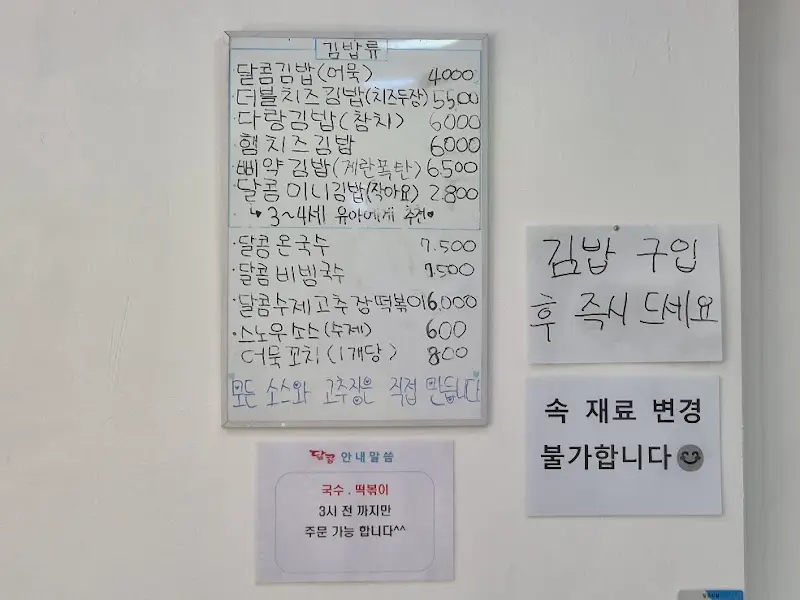 김밥류
·달콤김밥(어묵) 4000
·더블치즈김밥(치즈두장) 5500
·다랑김밥(참치) 6000
·햄치즈김밥 6000
·삐약김밥(계란폭탄) 6.500
·달콤미니김밥(작아요) 2.800
↳ 3~4세 유아에게 추천♥
·달콤온국수 7.500
·달콤비빔국수 7500
·달콤수제고추장떡볶이 6.000
·스노우소스(수제) 600
어묵꼬치(1개당) 800
모든 소스와 고추장은 직접 만듭니다
김밥 구입
후 즉시 드세요
속 재료 변경
불가합니다😊
달콤 안내말씀
국수 . 떡볶이
3시 전 까지만
주문 가능 합니다^^